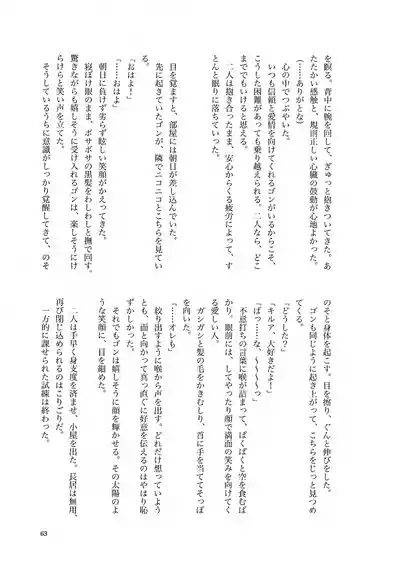 を眠る。背中に腕を回して、ぎゅっと抱きついてきた。あ
たたかい感触と、規則正しい心臓の鼓動が心地よかった。
（……ありがとな）
心の中でつぶやいた。
いつも信頼と愛情を向けてくれるゴンがいるからこそ、
こうした困難があっても乗り越えられる。二人なら、どこ
まででもいけると思える。
二人は抱き合ったまま、安心からくる疲労によって、す
とんと眠りに落ちていった。
目を覚ますと、部屋には朝日が差し込んでいた。
先に起きていたゴンが、隣でニコニコとこちらを見てい
る。
「おはよ！」
「……おはよ」
朝日に負けず劣らず眩しい笑顔がかえってきた。
寝ぼけ眼のまま、ボサボサの黒髪をわしわしと撫で回す。
驚きながらも嬉しそうに受け入れるゴンは、楽しそうにけ
らけらと笑い声を立てた。
そうしているうちに意識がしっかり覚醒してきて、のそ
のそと身体を起こす。目を擦り、ぐんと伸びをした。
ゴンも同じように起き上がって、こちらをじっと見つめ
てくる。
「どうした？」
「キルア、大好きだよ！」
「ぱっ……な、～～～～っ」
不意打ちの言葉に喉が詰まって、ぱくぱくと空を食むば
かり。眼前には、してやったり顔で満面の笑みを向けてく
る愛しい人。
ガシガシと髪の毛をかきむしり、首に手を当ててそっぽ
を向いた。
「……オレも」
絞り出すように喉から声を出す。どれだけ想っていよう
とも、面と向かって真っ直ぐに好意を伝えるのはやはり恥
ずかしかった。
それでもゴンは嬉しそうに顔を輝かせる。その太陽のよ
うな笑顔に、目を細めた。
二人は手早く身支度を済ませ、小屋を出た。長居は無用、
再び閉じ込められるのはこりごりだ。
一方的に課せられた試練は終わった。
63